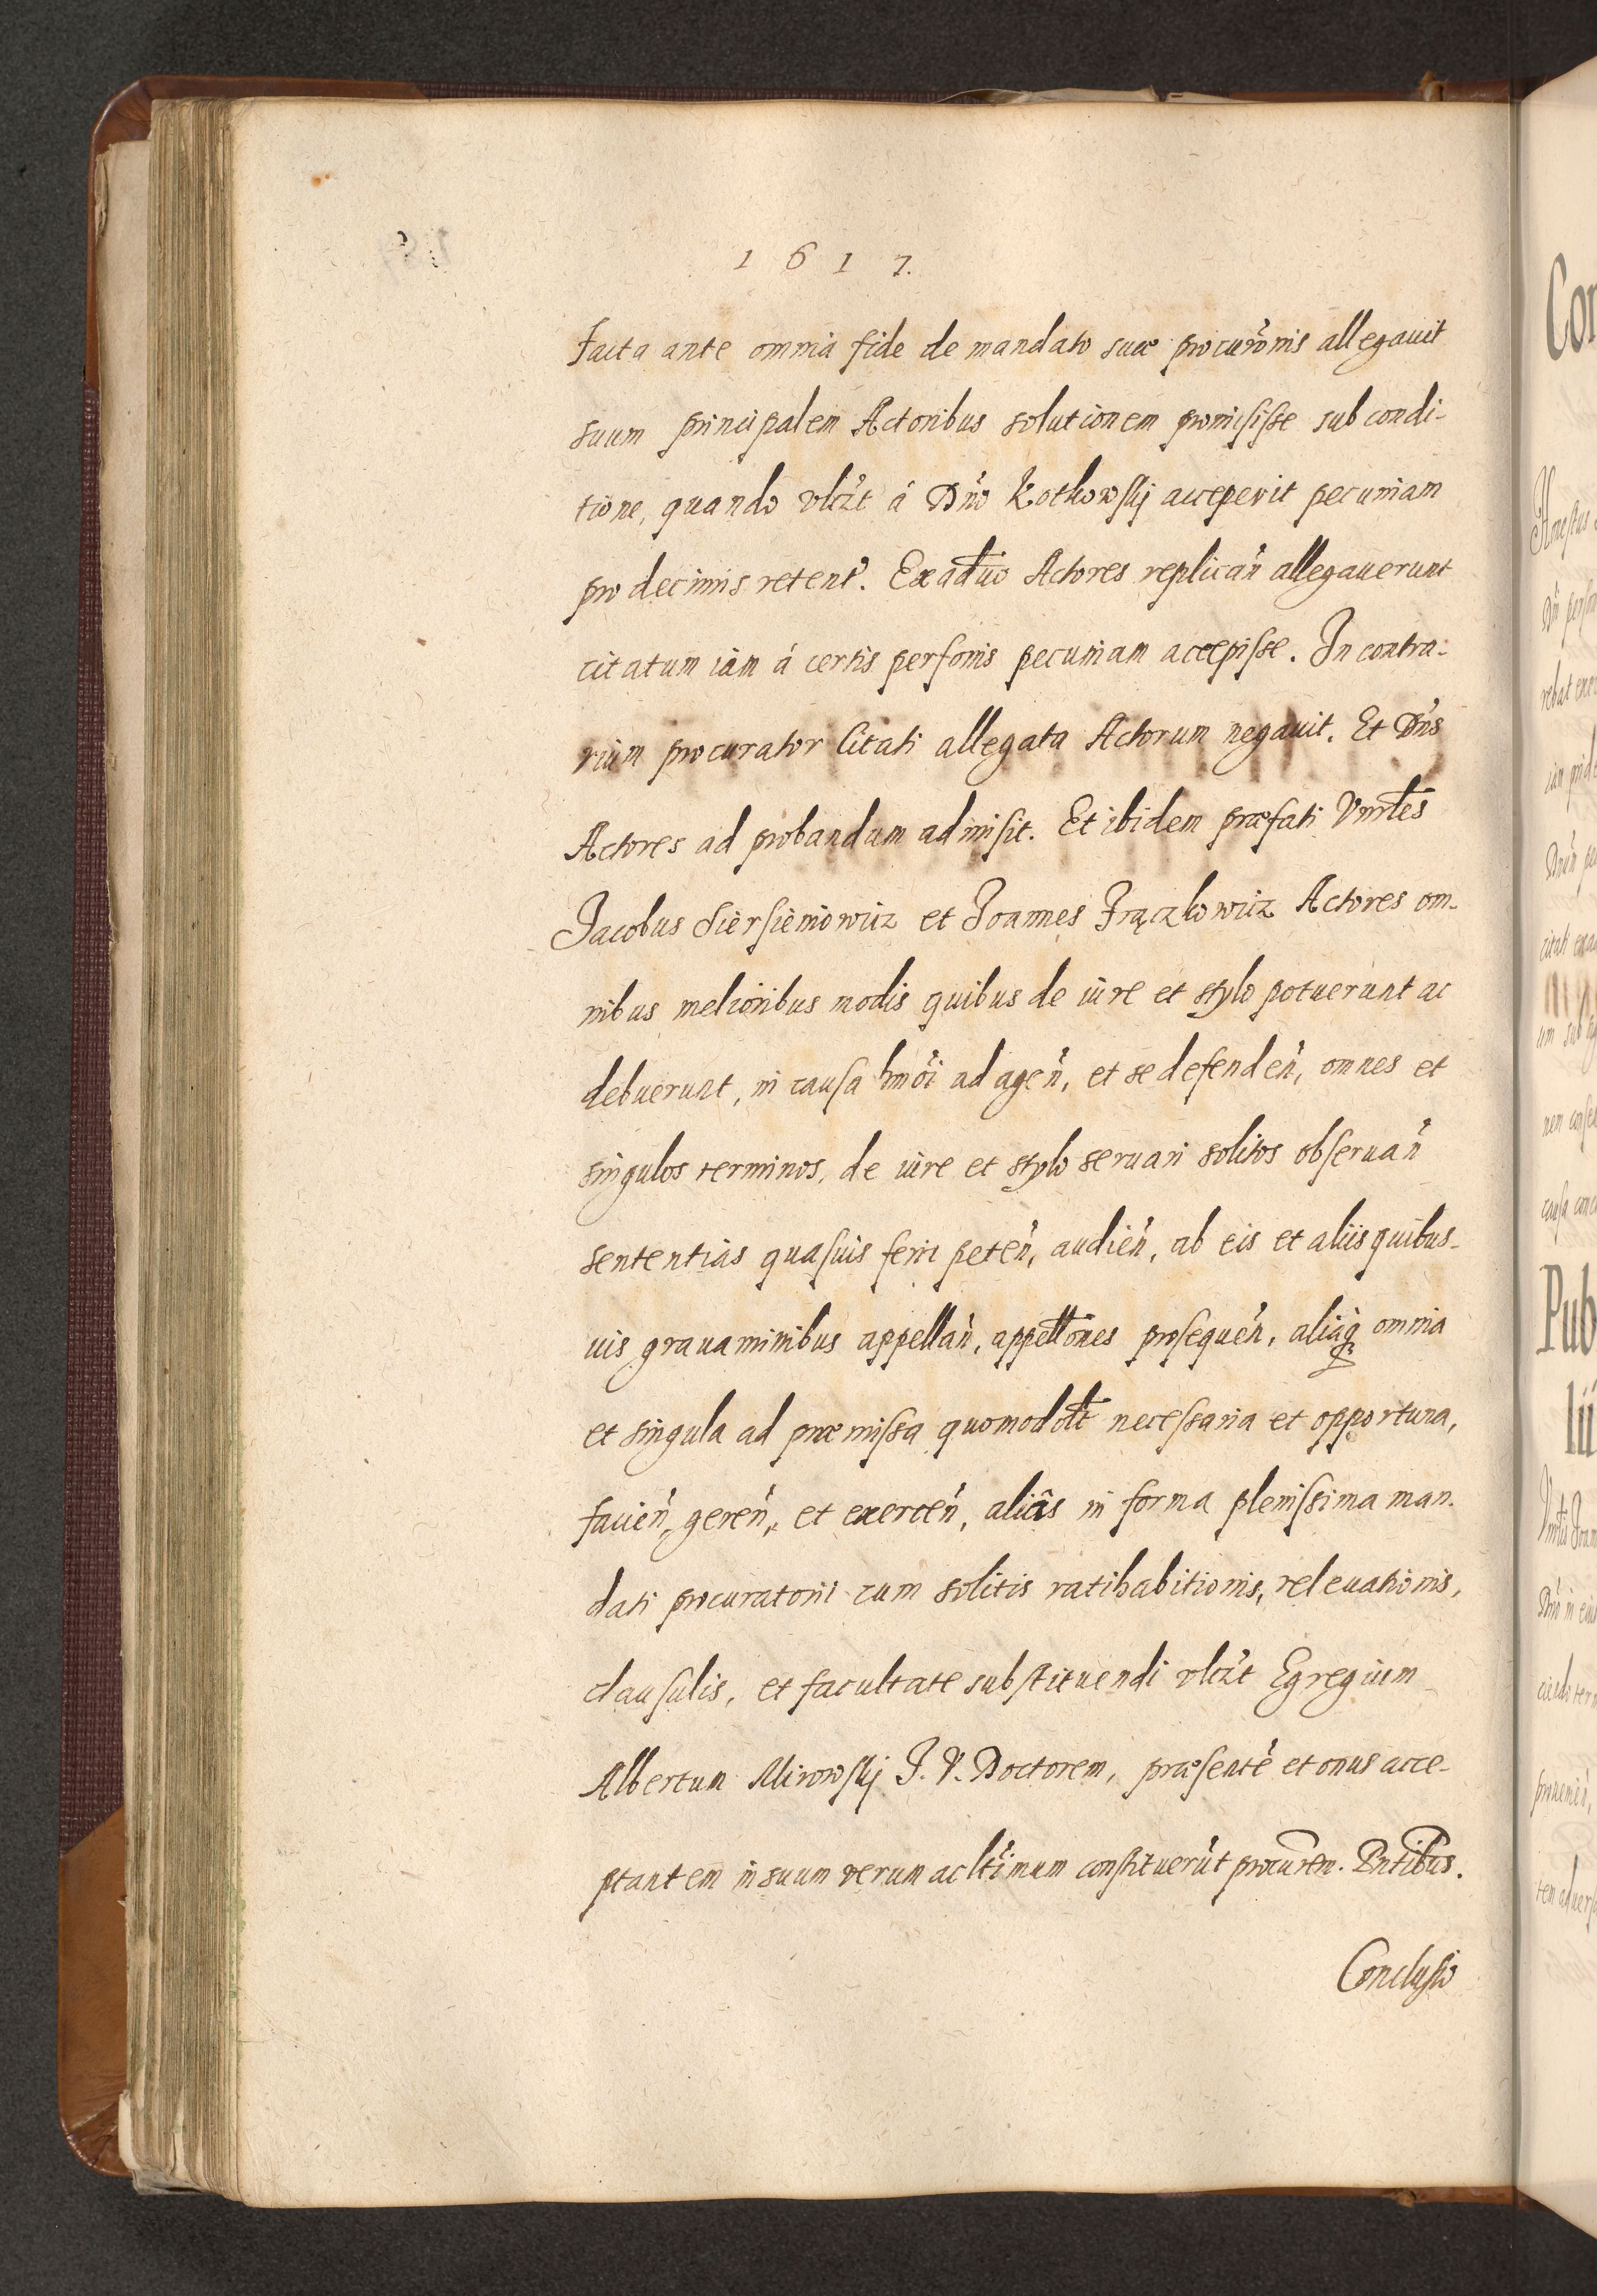 1 6 1 7.
Facta ante omnia fide de mandato suæ procurõnis allegauit
suum principalem Actoribus solutionem promisisse sub condi-
tione, quando vlt̃ à Dñõ Kotkowskj acceperit pecuniam
pro decimis retent̃. Ex aduõ Actores replicañ allegauerunt
citatum iam à certis personis pecuniam accepisse. In contra-
rium procurator Citati allegata Actorum negauit. Et Dñs
Actores ad probandum admisit. Et ibidem præfati
Jacobus Siersieniowicz et Joannes Frączkowicz Actores om-
nibus melioribus modis quibus de iure et stylo potuerunt ac
debuerunt, in causa hmõi ad ageñ, et se defendeñ, omnes et
singulos terminos, de iure et stylo seruari solitos obseruañ
sententias quasuis ferri peteñ, audieñ, ab eis et aliis quibus-
uis grauaminibus appellañ, appellõnes prosequeñ, aliaq̃ omnia
et singula ad præmissa quomodolt̃ necessaria et opportuna,
facieñ, gereñ, et exerceñ, aliâs in forma plenissima man-
dati procuratorii cum solitis ratihabitionis, releuationis,
clausulis, et facultate substituendi Egregium
Albertum Mirowskj J. V. Doctorem, præsentẽ et onus acce-
ptantem in suum verum ac ltĩmum constituerũt procurẽm. Pñtibus.
Conclusio